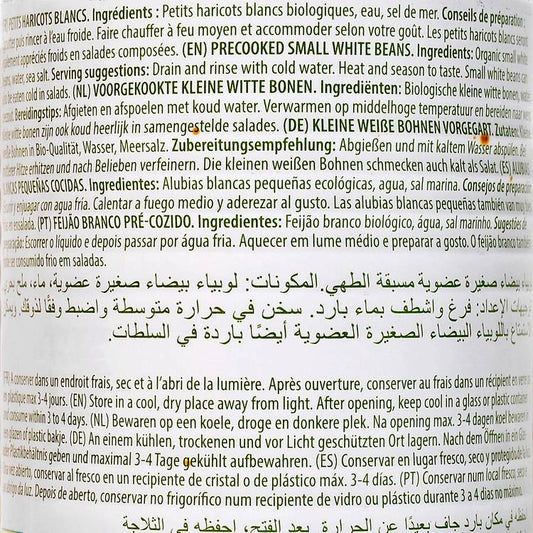 PETITS HARICOTS BLANCS. Ingrédients : Petits haricots blancs biologiques, eau, sel de mer. Conseils de préparation :
puis rincer à l'eau froide. Faire chauffer à feu moyen et accommoder selon votre goût. Les petits haricots blancs seront
appréciés froids en salades composées. (EN) PRECOOKED SMALL WHITE BEANS. Ingredients: Organic small white
water, sea salt. Serving suggestions: Drain and rinse with cold water. Heat and season to taste. Small white beans can
be eaten cold in salads. (NL) VOORGEKOOKTE KLEINE WITTE BONEN. Ingrediënten: Biologische kleine witte bonen, water,
Bereidingstips: Afgieten en afspoelen met koud water. Verwarmen op middelhoge temperatuur en bereiden naar
witte bonen zijn ook koud heerlijk in samengestelde salades. (DE) KLEINE WEIẞE BOHNEN VORGEGART. Zutaten: Kleine
Bohnen in Bio-Qualität, Wasser, Meersalz. Zubereitungsempfehlung: Abgießen und mit kaltem Wasser abspülen. Bei
Hitze erhitzen und nach Belieben verfeinern. Die kleinen weißen Bohnen schmecken auch kalt als Salat. (ES) ALUBIAS
BLANCAS PEQUEÑAS COCIDAS. Ingredientes: Alubias blancas pequeñas ecológicas, agua, sal marina. Consejos de preparación:
y enjuagar con agua fría. Calentar a fuego medio y aderezar al gusto. Las alubias blancas pequeñas también van muy bien
en ensaladas. (PT) FEIJÃO BRANCO PRÉ-COZIDO. Ingredientes: Feijão branco biológico, água, sal marinho. Sugestões de
preparação: Escorrer o líquido e depois passar por água fria. Aquecer em lume médio e preparar a gosto. O feijão branco também
ser consumido frio em saladas.
بيضاء صغيرة عضوية مسبقة الطهي. المكونات: لوبياء بيضاء صغيرة عضوية، ماء، ملح
الإعداد: فرغ واشطف بماء بارد. سخن في حرارة متوسطة واضبط وفقًا لذوقك.
باللوبياء البيضاء الصغيرة العضوية أيضًا باردة في السلطات.
(FR) A conserver dans un endroit frais, sec et à l'abri de la lumière. Après ouverture, conserver au frais dans un récipient en verre
plastique max 3-4 jours. (EN) Store in a cool, dry place away from light. After opening, keep cool in a glass or plastic container
and consume within 3 to 4 days. (NL) Bewaren op een koele, droge en donkere plek. Na opening max. 3-4 dagen koel bewaren
glazen of plastic bakje. (DE) An einem kühlen, trockenen und vor Licht geschützten Ort lagern. Nach dem Öffnen in ein
Plastikbehältnis geben und maximal 3-4 Tage gekühlt aufbewahren. (ES) Conservar en lugar fresco, seco y protegido de la
vez abierto, conservar al fresco en un recipiente de cristal o de plástico máx. 3-4 días. (PT) Conservar num local fresco, seco
abrigo da luz. Depois de aberto, conservar no frigorífico num recipiente de vidro ou plástico durante 3 a 4 dias no máximo.
في مكان بارد جاف بعيدًا عن الحرارة. بعد الفتح، احفظه في الثلاجة